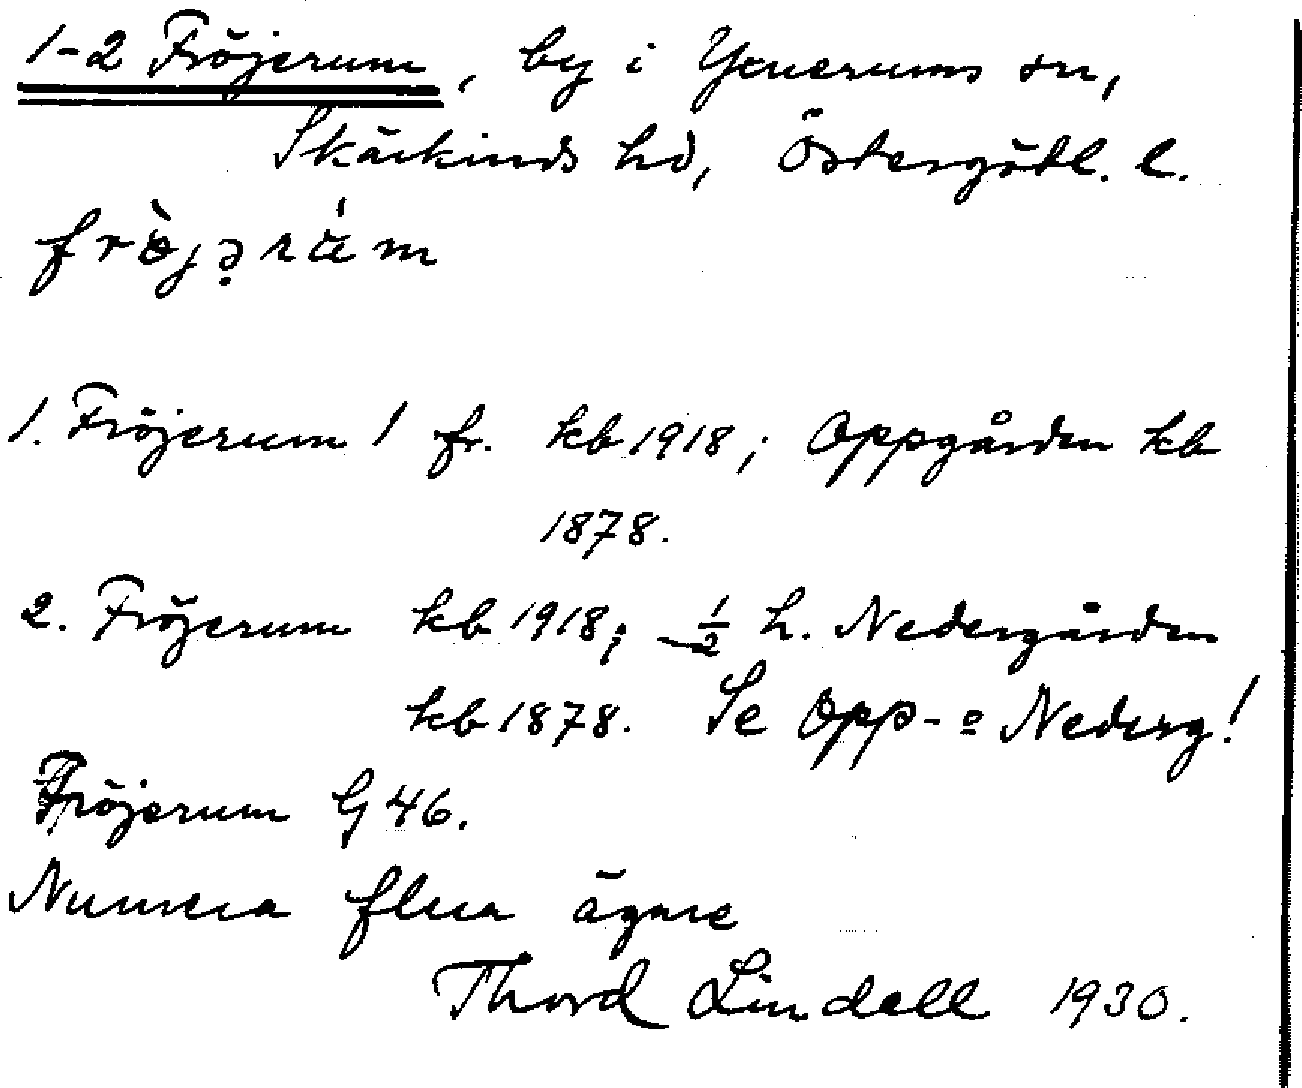 1-2 Fröjerum, by i Yxnerums sn,
Skärkinds hd, Östergötl. l.
1. Fröjerum 1 fr. kb 1918; Oppgården kb
1878.
2. Fröjerum kb 1918; ½ h. Nedergården
kb 1878. Se Opp- o Nederg!
Fröjerum G 46.
Numera flera ägare
Thord Lindell 1930.